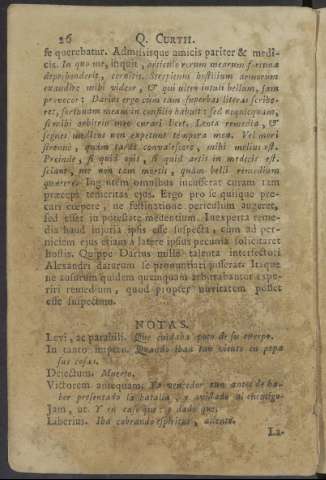 26 Q. CURTII.
se querebatur. Admissisque amicis pariter & medi-
cis. In quo me, inquit, articulo rerum mearum fortuna
deprehenderit, cernitis. Strepitum hostilium armorum
exaudire mihi videor, & qui ultro intuli bellum, jam
provocor: Darius ergo cùm tam superbas literas scribe-
ret, fortunam meam in consilio habuit: sed nequicquam,
si mihi arbitrio meo curari licet. Lenta remedia, &
segnes medicos non expetunt tempora mea. Vel mori
strenuè, quàm tardè convalescere, mihi melius est.
Proinde, si quid opis, si quid artis in medicis est,
sciant, me non tam mortis, quàm belli remedium
quærere. Ingentem omnibus incusserat curam tam
præceps temeritas ejus. Ergo pro se quisque pre-
cari cœpere, ne festinatione periculum augeret,
sed esset in potestate medentium. Inexperta reme-
dia haud injuria ipsis esse suspecta, cum ad per-
niciem ejus etiam à latere ipsius pecunia solicitaret
hostis. Quippe Darius mille talenta interfectori
Alexandri daturum se pronuntiari jusserat. Itaque
ne ausurum quidem quemquam arbitrabantur expe-
riri remedium, quod propter novitatem posset
esse suspectum.
NOTAS.
Levi, ac parabili. Que cuidaba poco de su cuerpo.
In tanto impetu. Quando iban tan viento en popa
sus cosas.
Dejectum. Muerto.
Victorem antequam. Ya vencedor aun antes de ha-
ber presentado la batalla, y avistado al enemigo.
Jam, ut. Y en caso que: o dado que.
Liberius. Iba cobrando espiritus, aliento.
La-